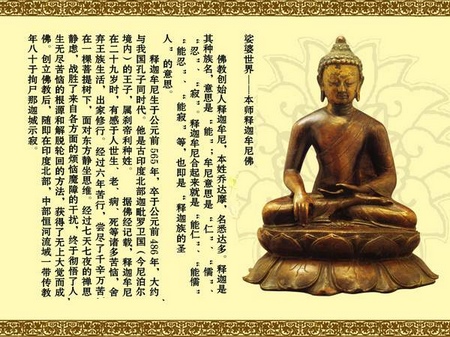 娑婆世界——本师释迦牟尼佛
佛教创始人释迦牟尼，本姓乔达摩，名悉达多。释迦是
其种族名，意思是“能”；牟尼意思是“仁”、“儒”、
“忍”、“寂”。释迦牟尼合起来就是“能仁”、“能儒”、
“能忍”、“能寂”等，也即是“释迦族的圣
人”的意思。
释迦牟尼生于公元前565年，卒于公元前486年，大约
与我国孔子同时代。他是古印度北部迦毗罗卫国（今尼泊尔
境内）的王子，属刹帝利种姓。 据佛经记载，释迦牟尼
在二十九岁时，有感于人世生、老、病、死等诸多苦恼，舍
弃王族生活，出家修行。经过六年苦行，尝尽了千辛万苦，
在一棵菩提树下，面对东方静坐思维。经过七天七夜的禅思
静虑，战胜了来自各方面的烦恼魔障的干扰，终于彻悟了人
生无尽苦恼的根源和解脱轮回的方法，获得了无上大觉而成
佛。创立佛教后，随即在印度北部，中部恒河流域一带传教，
年八十于拘尸那迦城示寂。